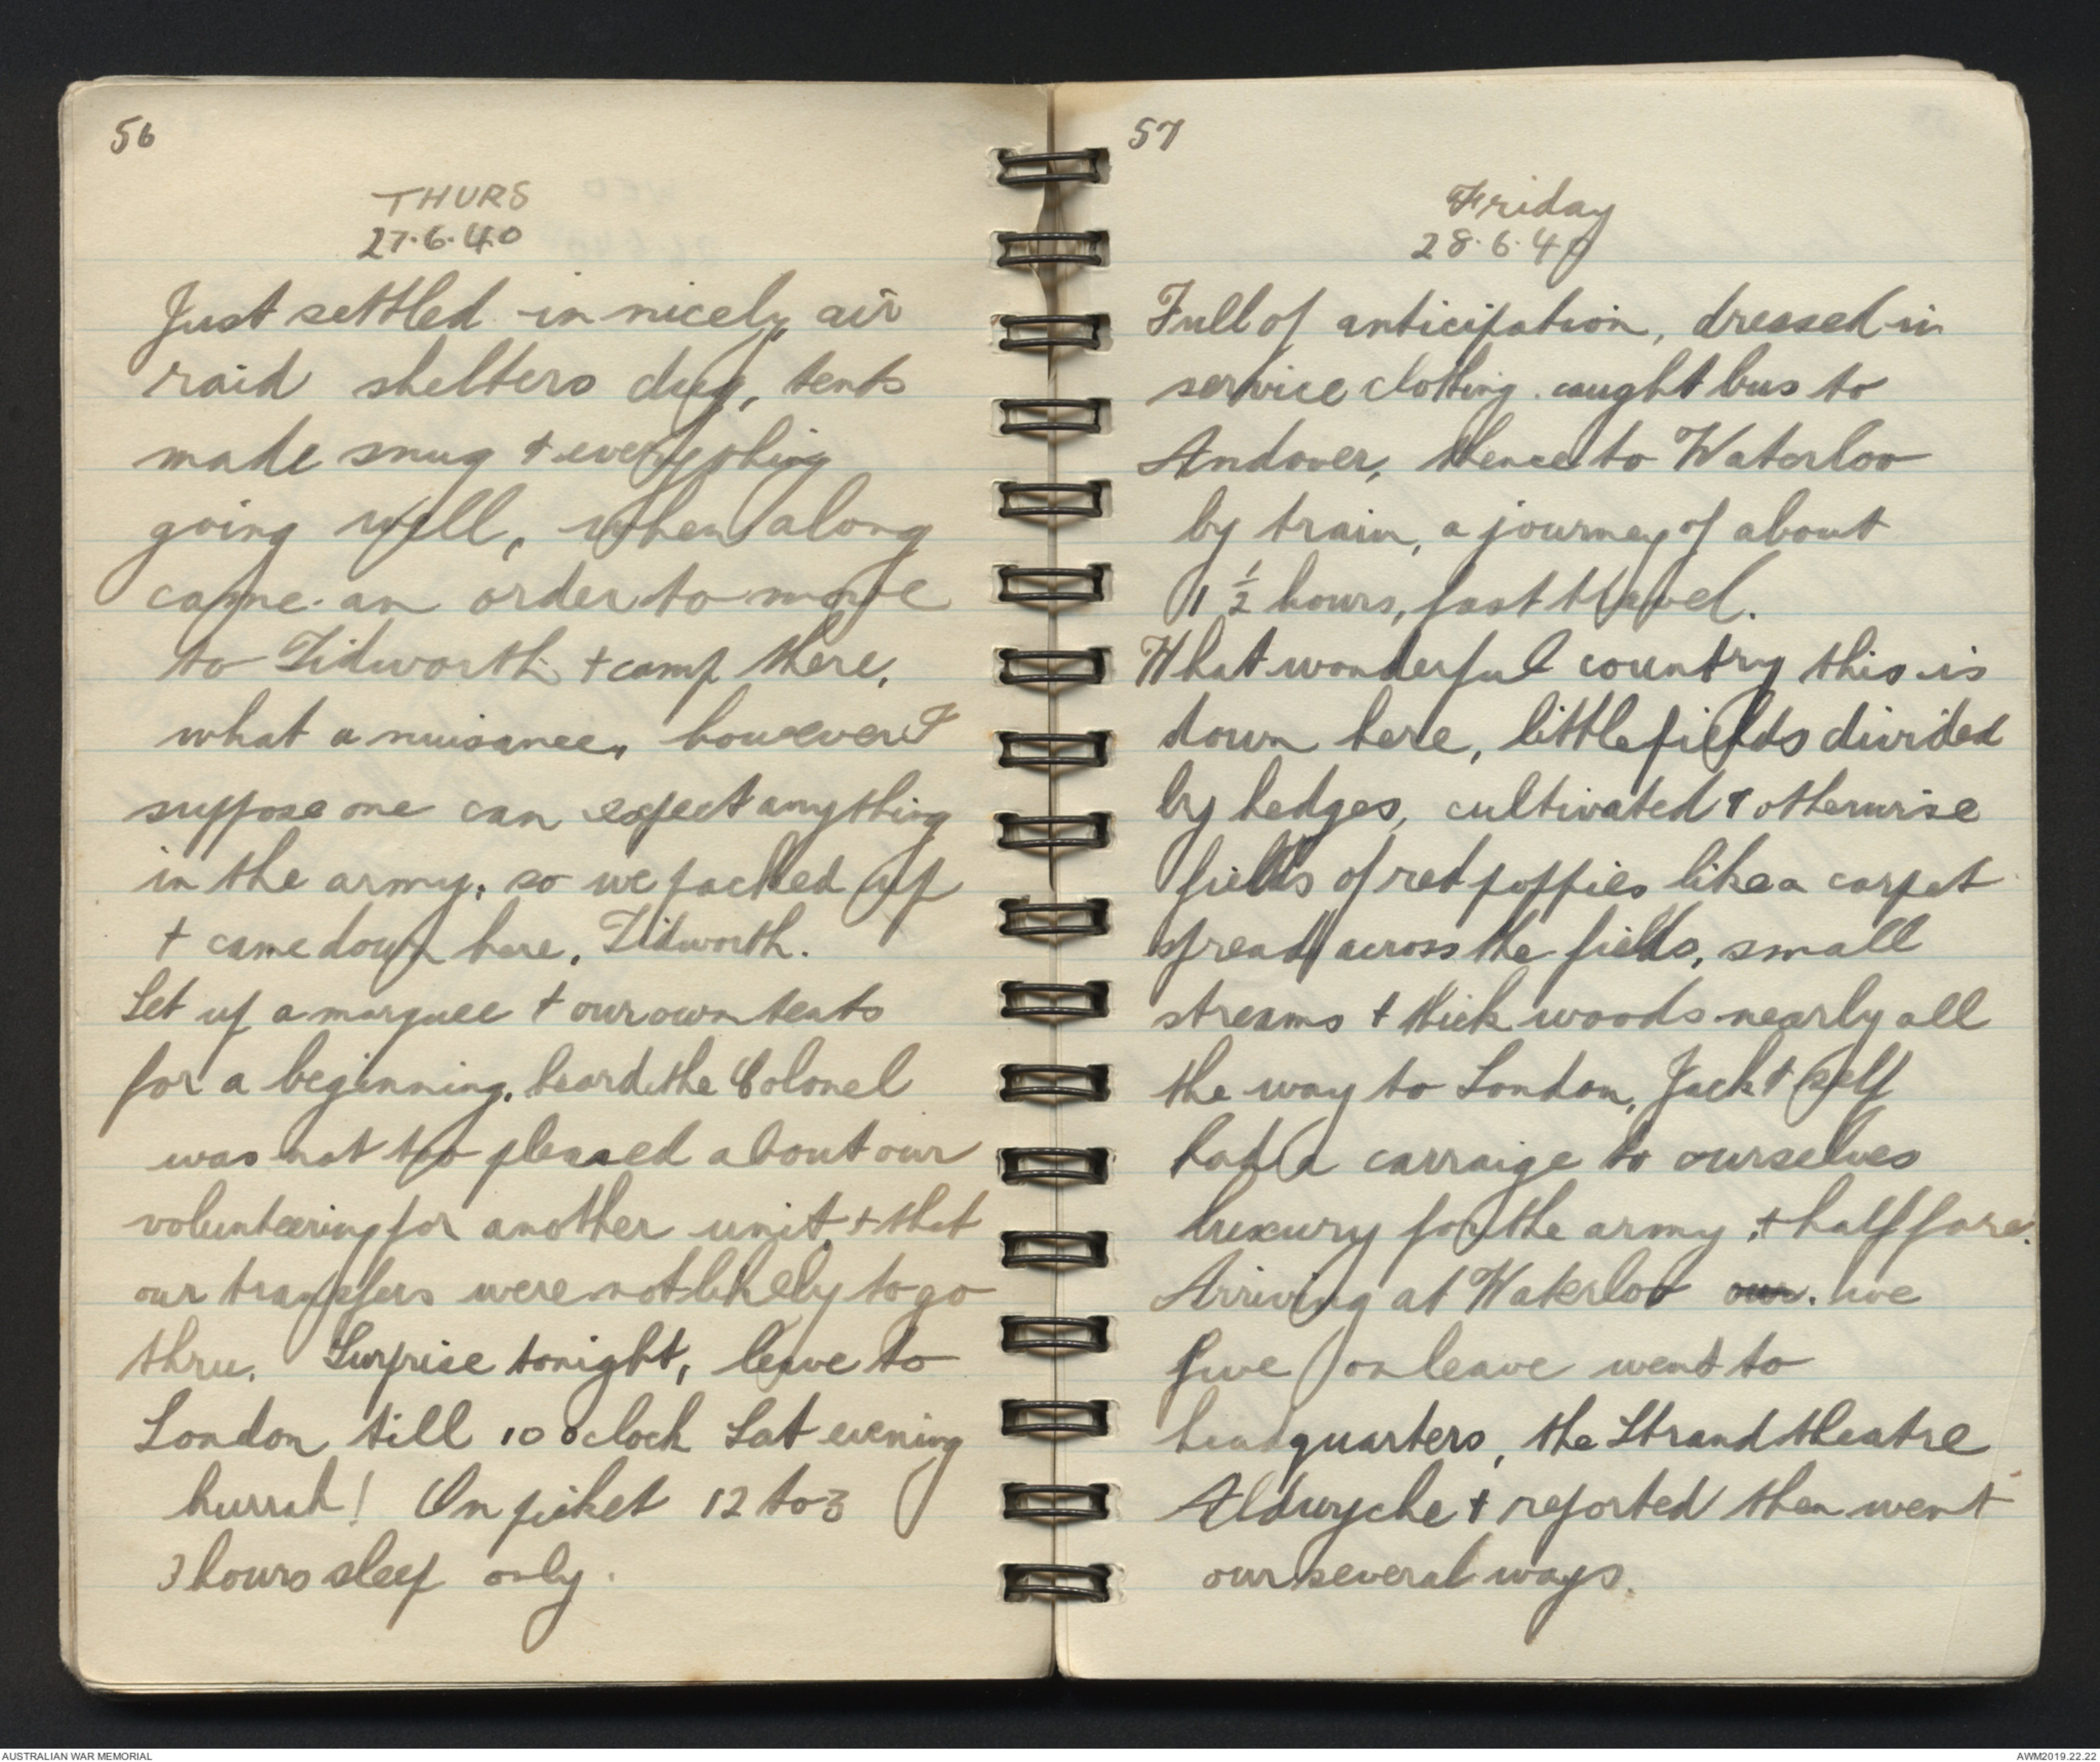 56
THURS
27.6.40
Just settled in nicely, air
raid shelters dug, tents
made snug + everything
going well, when along
came an order to move
to Tidworth + camp there,
what a nuisance, however I
suppose one can expect anything
in the army; so we packed up
+ came down here, Tidworth.
Set up a marquee + our own tents
for a beginning, heard the Colonel
was not too pleased about our
volunteering for another unit, + that
our transfers were not likely to go
thru. Surprise tonight, leave to
London till 10 oclock Sat evening
hurrah! On piket 12 to 3
3 hours sleep only.
57
Friday
28.6.40
Full of anticipation, dressed in
service clothing caught bus to
Andover, thence to Waterloo
by train, a journey of about
1 1/2 hours, fast travel.
What wonderful country this is
down here, little fields divided
by hedges, cultivated + otherwise
fields of red poppies like a carpet
spread across the fields, small
streams + thick woods nearly all
the way to London, Jack + self
had a carraige to ourselves
luxury for the army + half fare.
Arriving at Waterloo our we
five on leave went to
headquarters, the Strand theatre
Aldwyche + reported then went
our several ways.
AUSTRALIAN WAR MEMORIAL
AWM2019.22.22